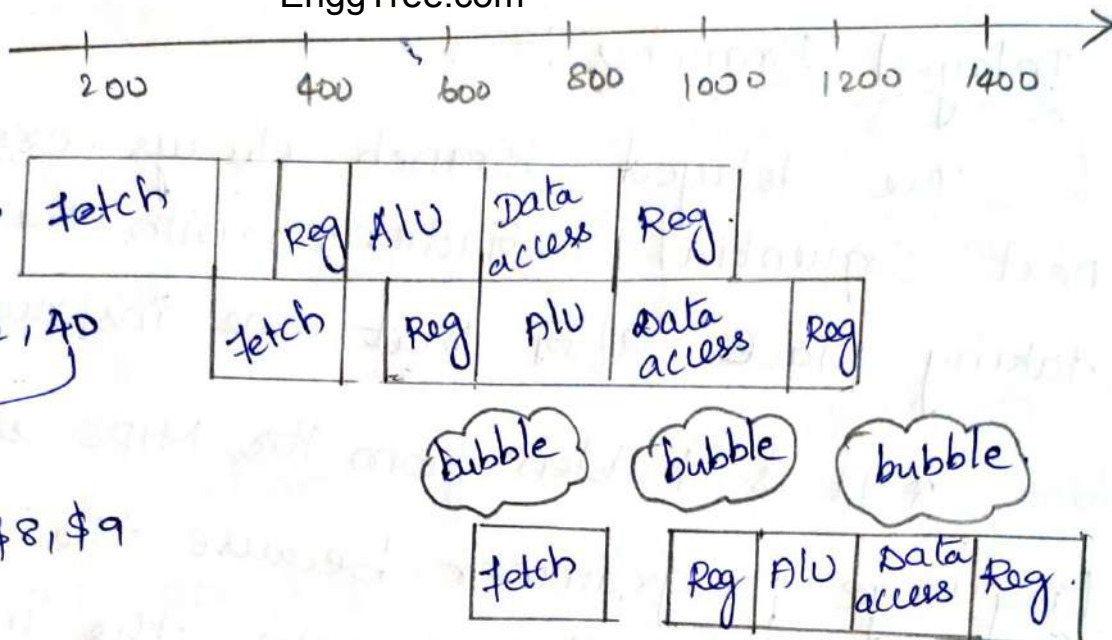 EnggTree.com
200 400 600 800 1000 1200 1400
Fetch Reg ALU Data access Reg.
, 40 Fetch Reg ALU Data access Reg
bubble bubble bubble.
$8, $9 Fetch Reg ALU Data access Reg.